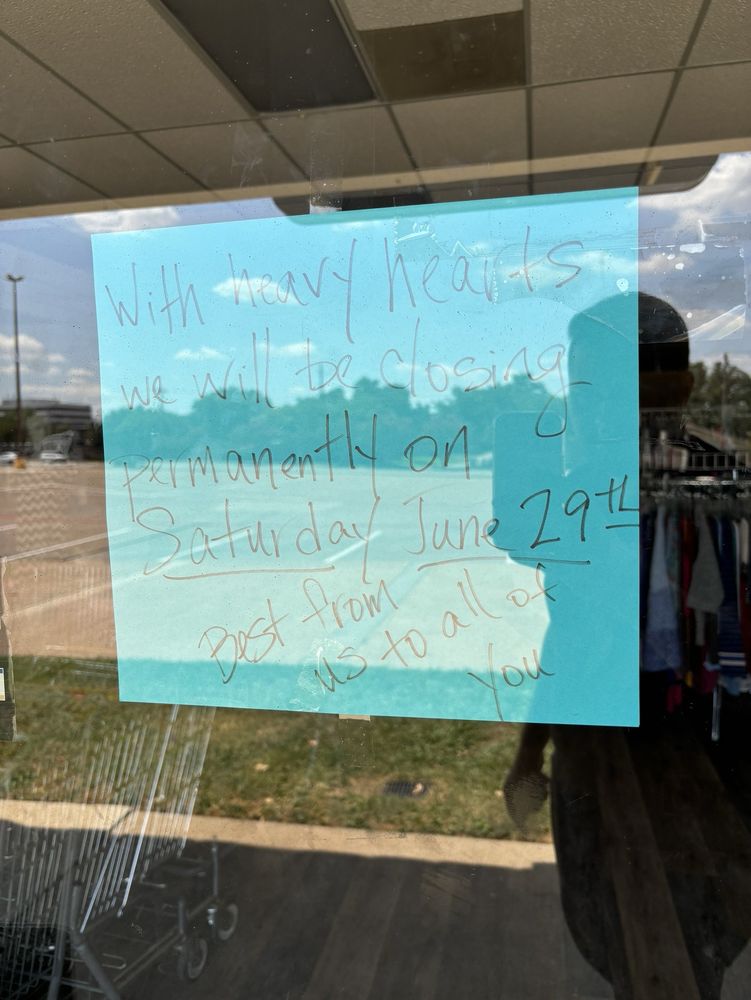 With heavy hearts
we will be closing
permanently on
Saturday June 29th
Best from
us to all of
you